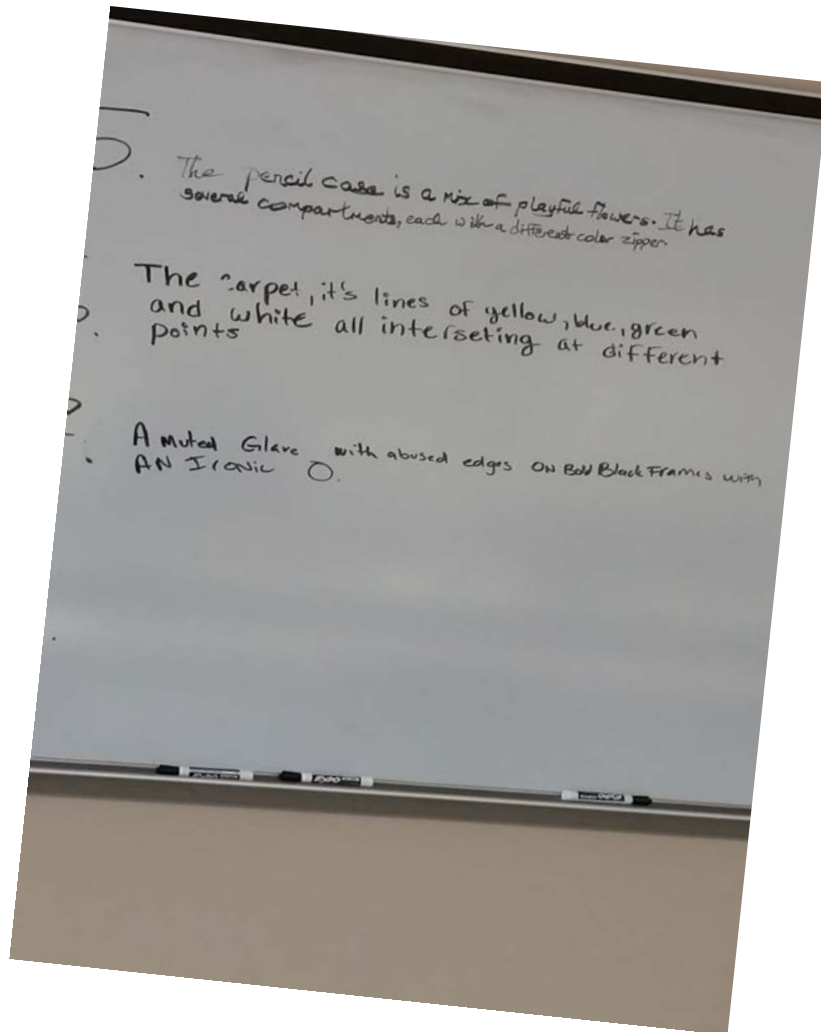 5. The pencil case is a mix of playful flowers. It has
several compartments, each with a different color zipper.
The carpet, it's lines of yellow, blue, green
and white all interseting at different
points
A muted Glare with abused edges ON Bold Black Frames with
AN Ironic O.
EXPO
EXPO